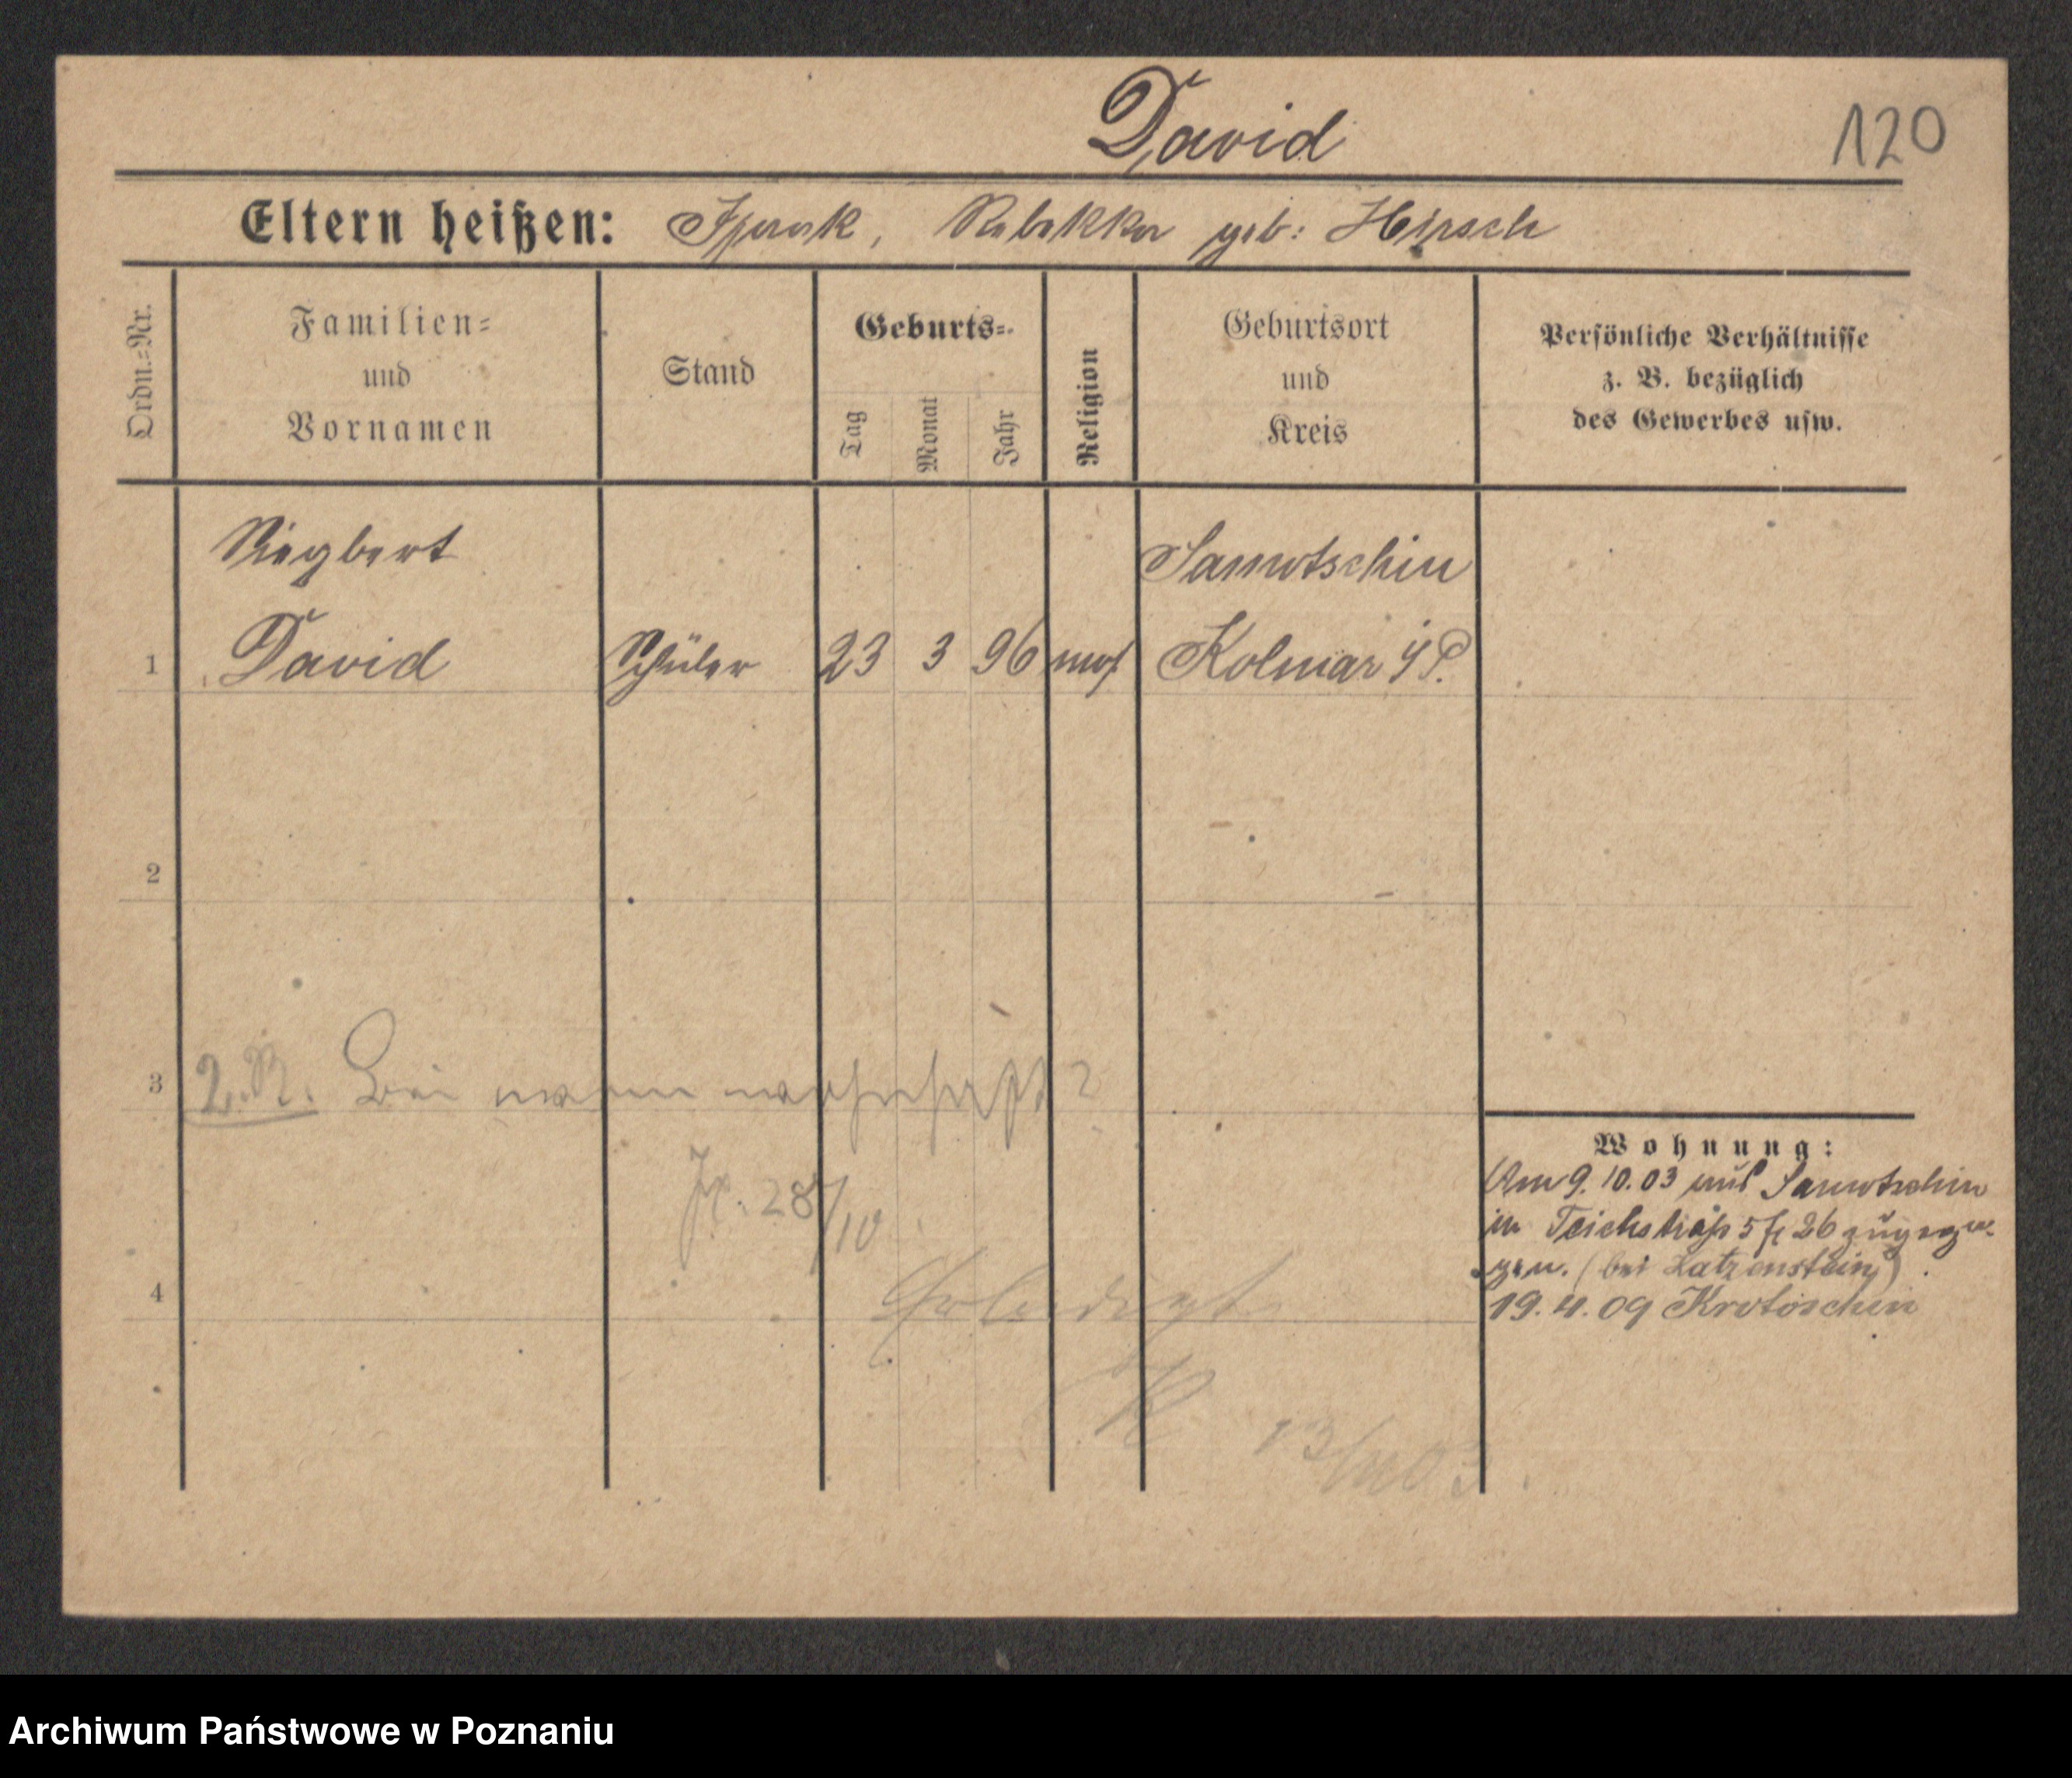 David
120
Eltern heißen: Isaak, Rebekka geb: Hirsch
Ordn.=Nr.
Familien=
und
Vornamen
Stand
Geburts=
Tag
Monat
Jahr
Religion
Geburtsort
und
Kreis
Persönliche Verhältnisse
z. B. bezüglich
des Gewerbes usw.
Siegbert
Samotschin
1 David Schüler 23 3 96 mos Kolmar i/P.
2
3 2.R. Bei wem wohnhaft?
28/10
4 Erledigt
13/11 03
Wohnung:
Am 9.10.03 aus Samotschin
in Teichstraße 5 26 zugezo-
gen. (bei Katzenstein)
19.4.09 Krotoschin
Archiwum Państwowe w Poznaniu